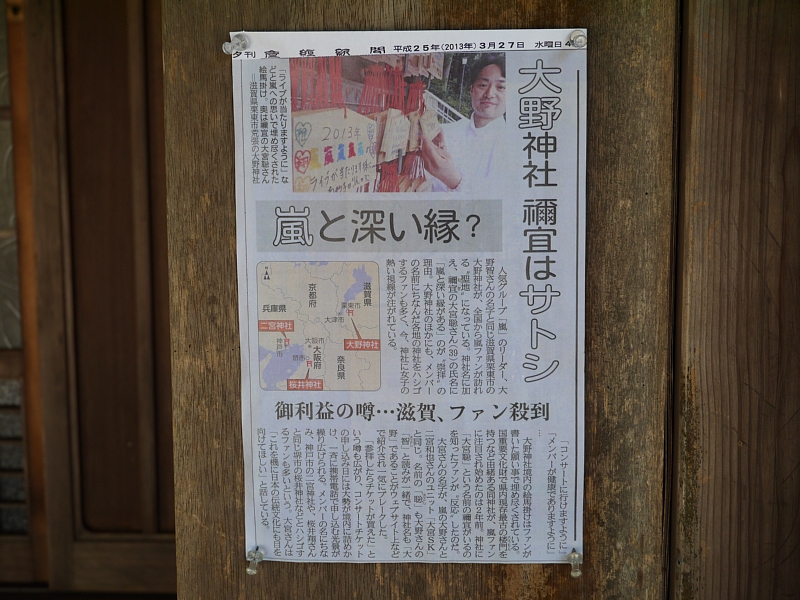 夕刊 産經新聞 平成25年(2013年)3月27日 水曜日 4
大野神社 禰宜はサトシ
「ライブが当たりますように」な
どと嵐への思いで埋め尽くされた
絵馬掛け。奥は禰宜の大宮聡さん
＝滋賀県栗東市荒張の大野神社
2013年
ライブが当たります様に
嵐と深い縁？
人気グループ「嵐」のリーダー、大
野智さんの名字と同じ滋賀県栗東市の
大野神社が、全国から嵐ファンが訪れ
る“聖地”になっている。神社名に加
え、禰宜の大宮聡さん(39)の氏名に
「嵐と深い縁がある」のが“崇拝”の
理由。大野神社のほかにも、メンバー
の名前にちなんだ各地の神社をハシゴ
するファンも多く、今、神社に女子の
熱い視線が注がれている。
兵庫県
京都府
滋賀県
栗東市
大津市
二宮神社
大野神社
神戸市
大阪市
大阪府
堺市
奈良県
桜井神社
御利益の噂…滋賀、ファン殺到
「コンサートに行けますように」
「メンバーが健康でありますように」
…
大野神社境内の絵馬掛けはファンが
書いた願い事で埋め尽くされている。
国重要文化財で県内現存最古の楼門を
持つなど由緒ある同神社が、嵐ファン
に注目され始めたのは2年前。神社に
「大宮聡」という名前の禰宜がいるの
を知ったファンが“反応”したのだ。
大宮さんの名字が、嵐の大野さんと
二宮和也さんのユニット「大宮SK」
と同じ。名前の「聡」も大野さんの
「智」と読みが一緒で、神社名も「大
野」であることがウェブサイト上など
で紹介され一気にブレークした。
「参拝したらチケットが買えた」と
いう噂も広がり、コンサートチケット
の申し込み日には大勢が境内に詰めか
け、一斉に携帯電話で申し込む光景が
繰り広げられる。メンバーの名にちな
み、神戸市の二宮神社や、桜井翔さん
と同じ堺市の桜井神社などとハシゴす
るファンも多いという。大宮さんは
「これを機に日本の伝統文化にも目を
向けてほしい」と話している。